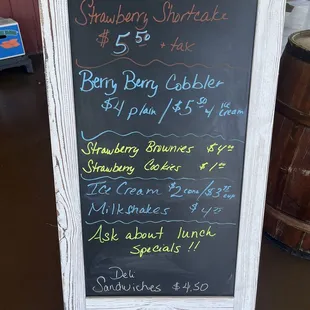 Strawberry Shortcake
$5.50 + tax
Berry Berry Cobbler
$4 plain / $5.50 w/ ice cream
Strawberry Brownies $4.00
Strawberry Cookies $1.00
Ice Cream $2 cone /
Milkshakes
Ask about lunch
Specials !!
Deli
Sandwiches $4.50